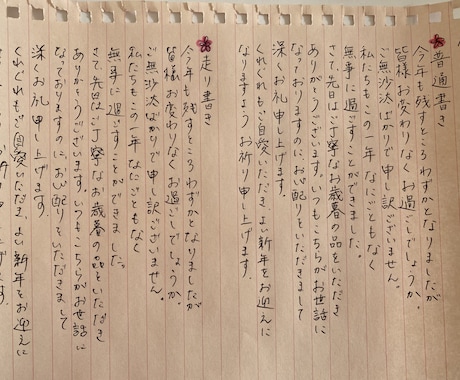 普通書き
今年も残すところわずかとなりましたが
皆様お変わりなくお過ごしでしょうか。
ご無沙汰ばかりで申し訳ございません。
私たちもこの一年なにごともなく
無事に過ごすことができました。
さて、先日はご丁寧なお歳暮の品をいただき
ありがとうございます。いつもこちらがお世話に
なっておりますのに、お心配りをいただきまして
深くお礼申し上げます。
くれぐれもご自愛いただき、よい新年をお迎えに
なりますようお祈り申し上げます。
走り書き
今年も残すところわずかとなりましたが
皆様お変わりなくお過ごしでしょうか。
ご無沙汰ばかりで申し訳ございません。
私たちもこの一年なにごともなく
無事に過ごすことができました。
さて、先日はご丁寧なお歳暮の品をいただき
ありがとうございます。いつもこちらがお世話に
なっておりますのに、お心配りをいただきまして
深くお礼申し上げます。
くれぐれもご自愛いただき、よい新年をお迎えに